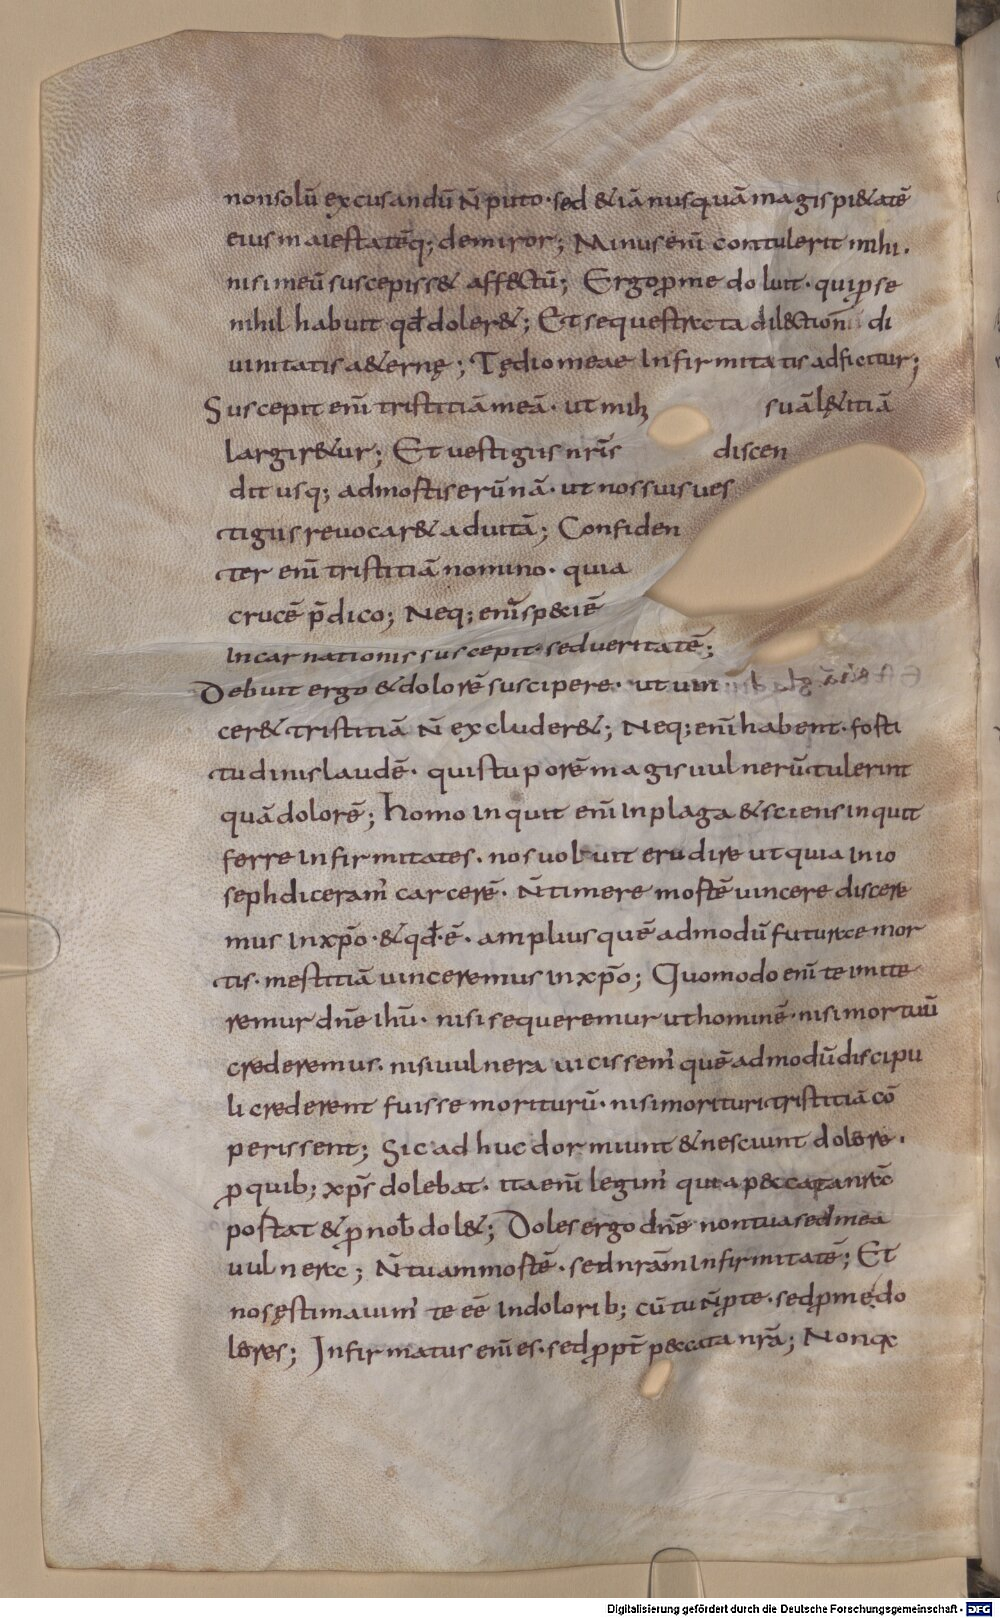 nonsolū excusandū n̄ puto · sed &iā nusquā magis pi&atē
eius maiestatēq; demiror; Minus enī contulerit mihi ·
nisi meū suscepiss& affectū; Ergo ꝓme doluit · qui ꝓse
nihil habuit qđ doler&; Et sequestrata dil&tion di
uinitatis a&ernę; Tędio meae Infirmitatis adficitur;
Suscepit enī tristitiā meā · ut mihi suā l&itiā
largir&ur; Et uestigiis nr̄is discen
dit usq; admortis erūnā · ut nos suis ues
tigiis reuocar& aduitā; Confiden
ter enī tristitiā nomino · quia
crucē p̄dico; Neq; enī sp&iē
Incarnationis suscepit · sed ueritatē;
Debuit ergo &dolorē suscipere · ut uin
cer& tristitiā n̄ excluder&; Neq; enī habent · forti
tudinis laudē · qui stuporē magis uulnerū tulerint
quā dolorē; homo Inquit enī Inplaga &sciens inquit
ferre Infirmitates · nos uoluit erudire ut quia In io
seph diceram̄ carcerē · n̄ timere mortē uincere discere
mus Inxp̄o · &qđ·ē · amplius quē admodū futurae mor
tis · mestitiā uinceremus Inxp̄o; Quomodo enī te imite
remur dn̄e ihū · nisi sequeremur ut hominē · nisi mortuū
crederemus · nisi uulnera uicissem̄ quē admodū discipu
li crederent fuisse moriturū · nisi morituri tristitiā cō
perissent; Sic adhuc dormiunt &nesciunt dolere ·
ꝓquib; xp̄s dolebat · ita enī legim̄ quia p&cata nr̄a
portat &ꝓnob dol&; Doles ergo dn̄e non tua sed mea
uulnera; N̄ tuam mortē · sed nr̄am Infirmitatē; Et
nos ęstimauim̄ te eē Indolorib; cū tu n̄ ꝓte · sed ꝓme do
leres; Infirmatus enī es · sed ꝓpt̄ p&cata nr̄a; Non qa
Digitalisierung gefördert durch die Deutsche Forschungsgemeinschaft - DFG